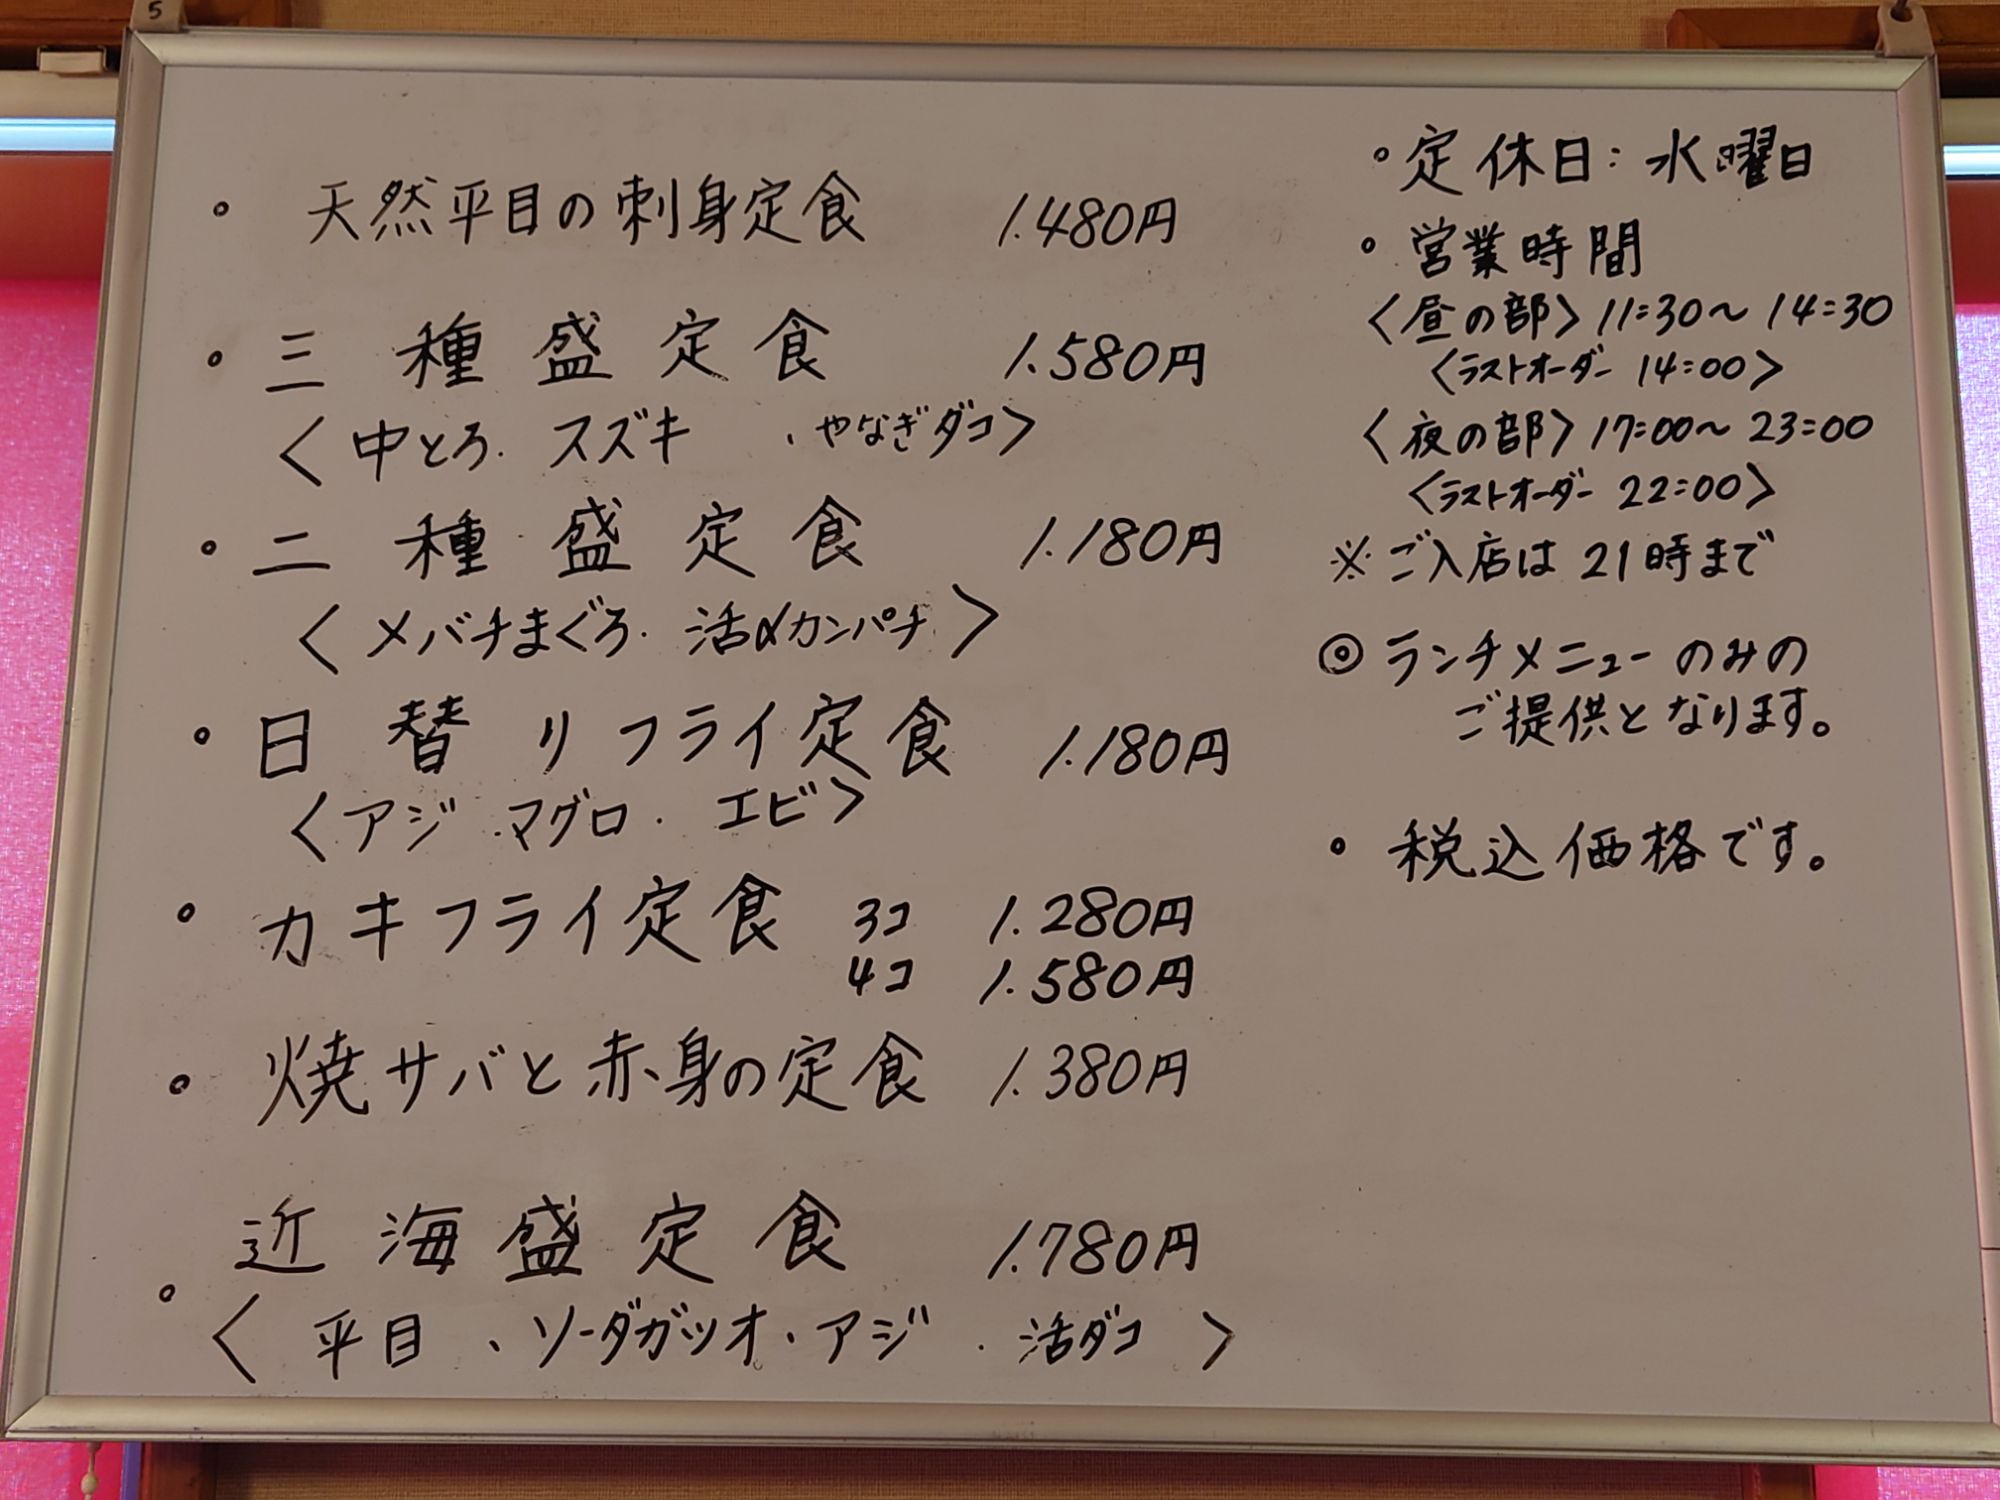 5
• 天然平目の刺身定食 1.480円
• 三種盛定食 1.580円
〈中とろ.スズキ 、やなぎダコ〉
• 二種盛定食 1.180円
〈メバチまぐろ.活〆カンパチ〉
• 日替りフライ定食 1.180円
〈アジ.マグロ.エビ〉
• カキフライ定食 3コ 1.280円
4コ 1.580円
• 焼サバと赤身の定食 1.380円
• 近海盛定食 1.780円
〈平目、ソーダガツオ、アジ.活ダコ〉
• 定休日:水曜日
• 営業時間
〈昼の部〉11:30～14:30
〈ラストオーダー 14:00〉
〈夜の部〉17:00～23:00
〈ラストオーダー 22:00〉
※ご入店は21時まで
◎ランチメニューのみの
ご提供となります。
• 税込価格です。